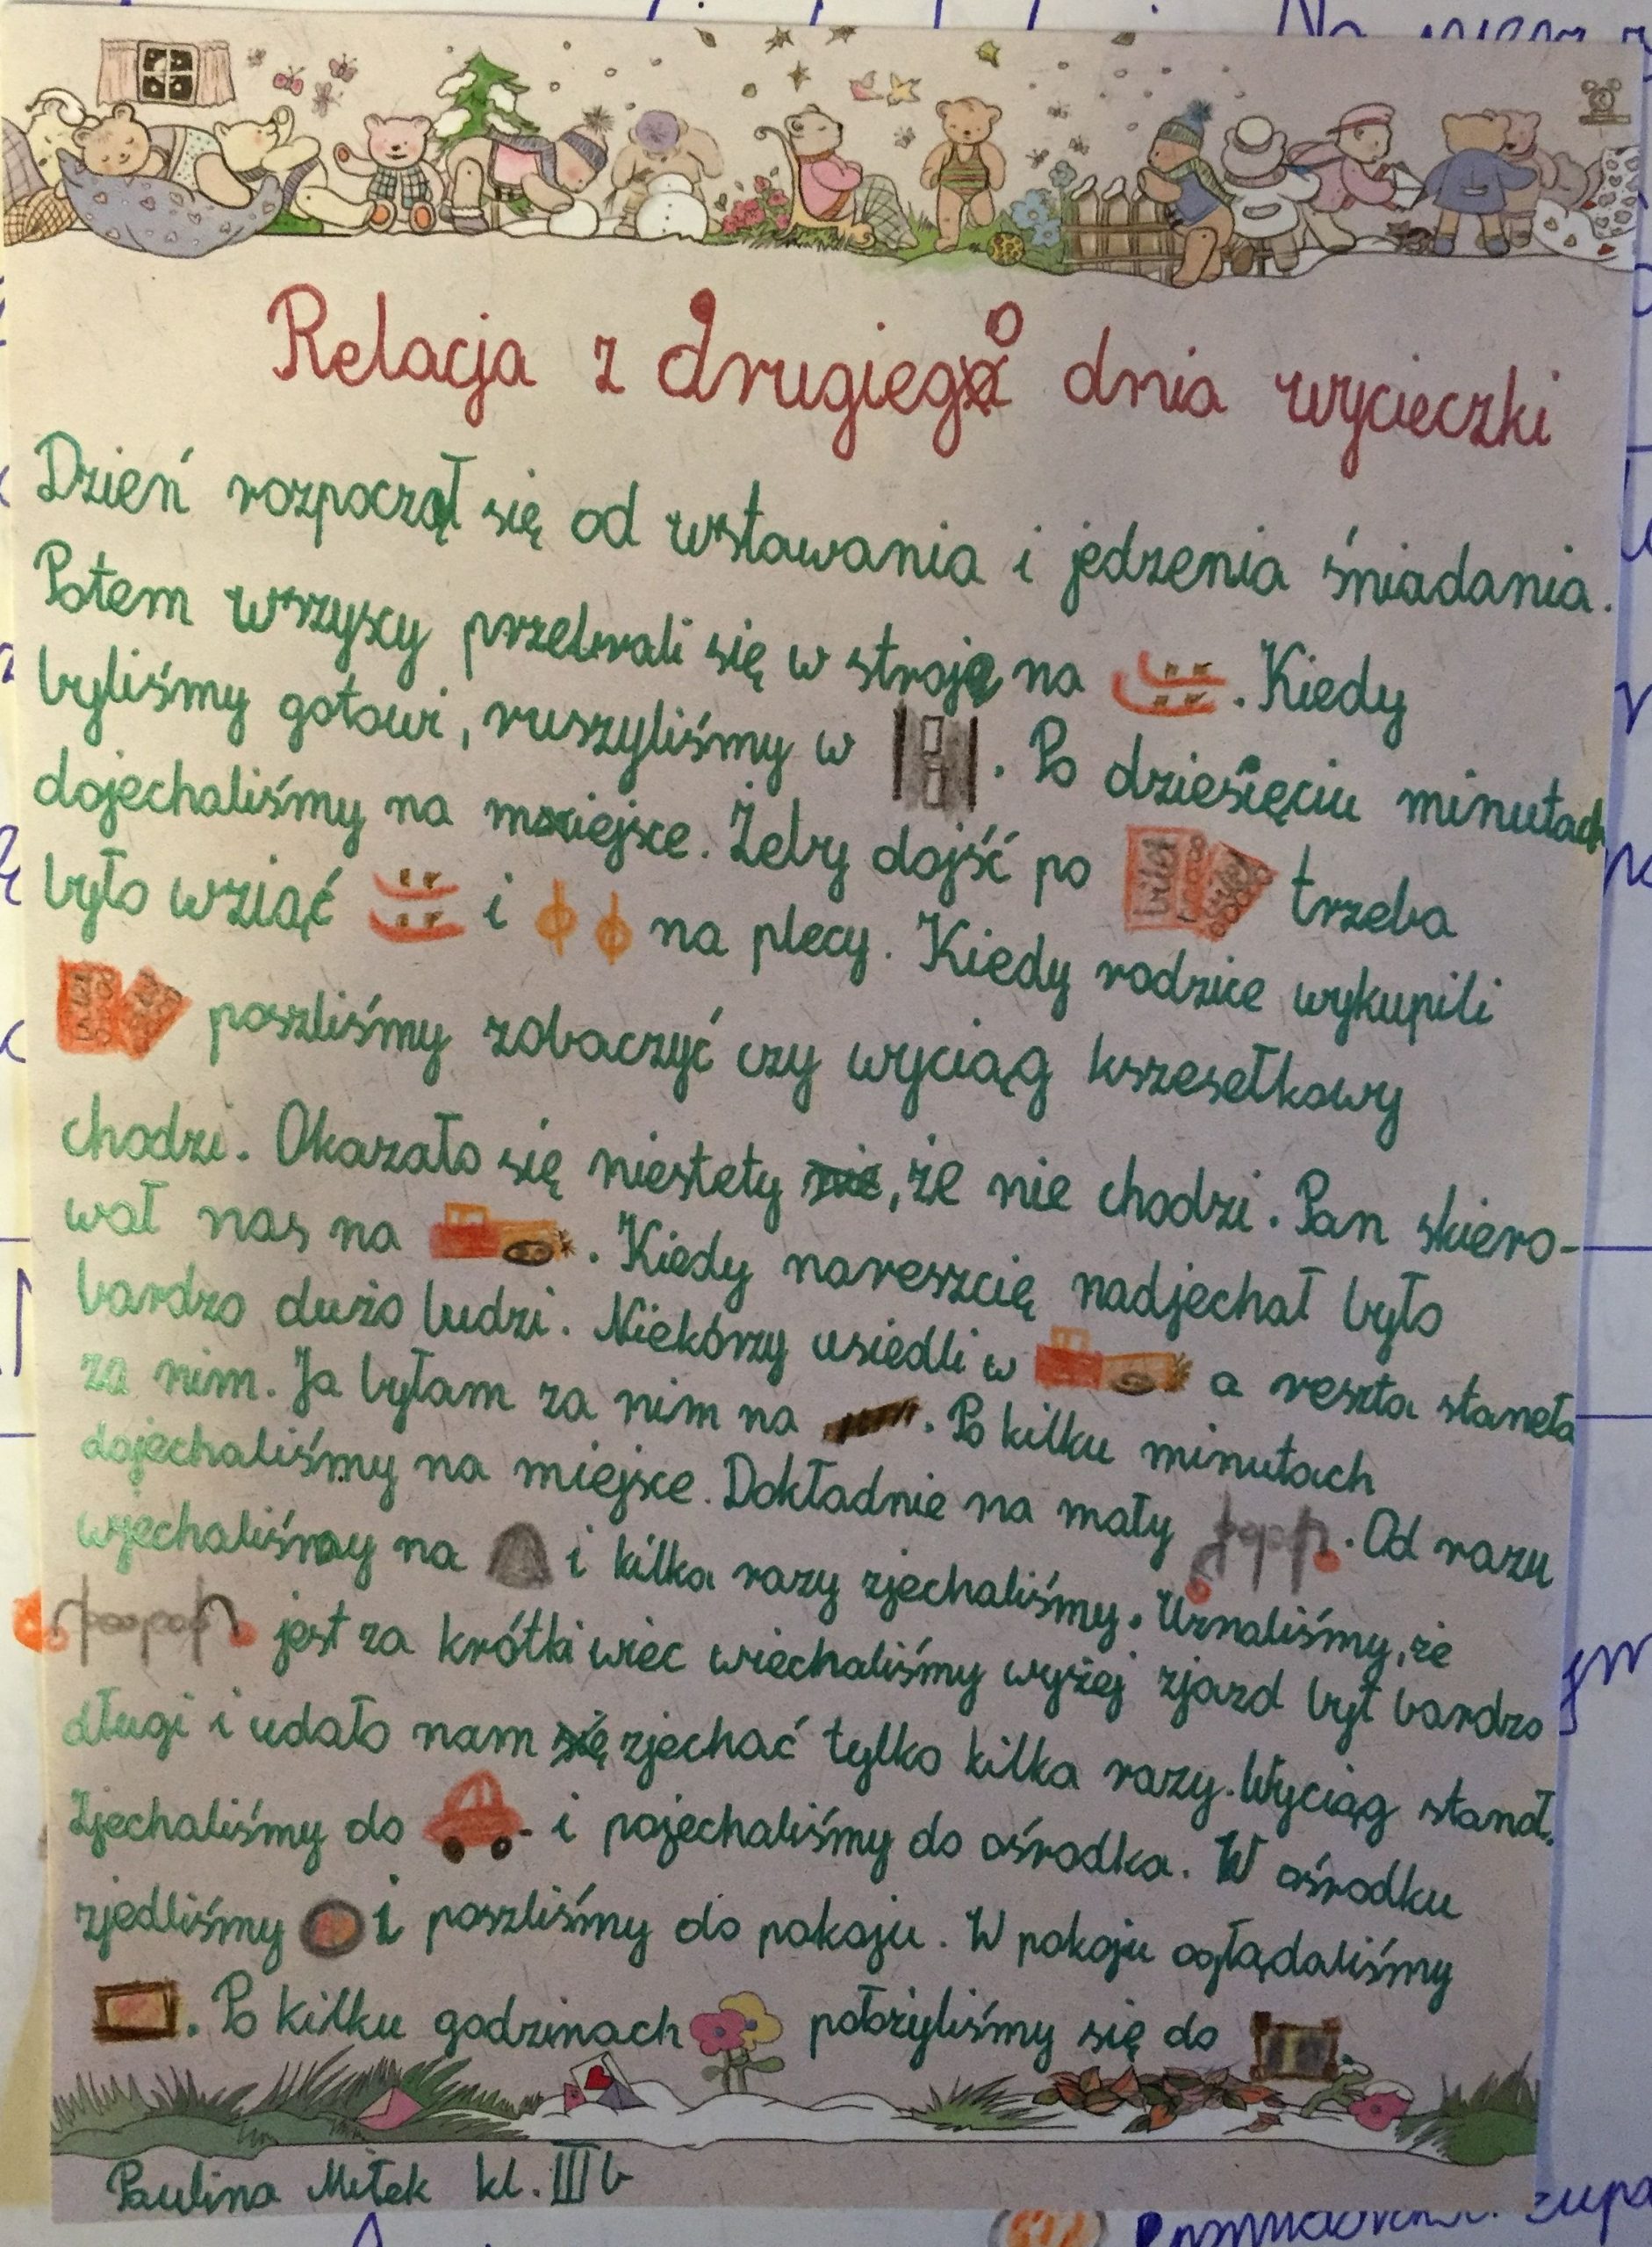 Relacja z drugiego dnia wycieczki
Dzień rozpoczął się od wstawania i jedzenia śniadania.
Potem wszyscy przebrali się w stroje na . Kiedy
byliśmy gotowi, ruszyliśmy w . Po dziesięciu minutach
dojechaliśmy na miejsce. Żeby dojść po trzeba
było wziąć i na plecy. Kiedy rodzice wykupili
poszliśmy zobaczyć czy wyciąg kszesełkowy
chodzi. Okazało się niestety, że nie chodzi. Pan skiero-
wał nas na . Kiedy nareszcię nadjechał było
bardzo dużo ludzi. Niekórzy usiedli w a reszta staneła
za nim. Ja byłam za nim na . Po kilku minutach
dojechaliśmy na miejsce. Dokładnie na mały . Od razu
wjechaliśmy na i kilka razy zjechaliśmy. Uznaliśmy, że
jest za krótki wiec wiechaliśmy wyżej zjazd był bardzo
długi i udało nam zjechać tylko kilka razy. Wyciąg stanoł.
Zjechaliśmy do i pojechaliśmy do ośrodka. W ośrodku
zjedliśmy i poszliśmy do pokoju. W pokoju oglądaliśmy
. Po kilku godzinach położyliśmy się do
Paulina Mitek kl. III b